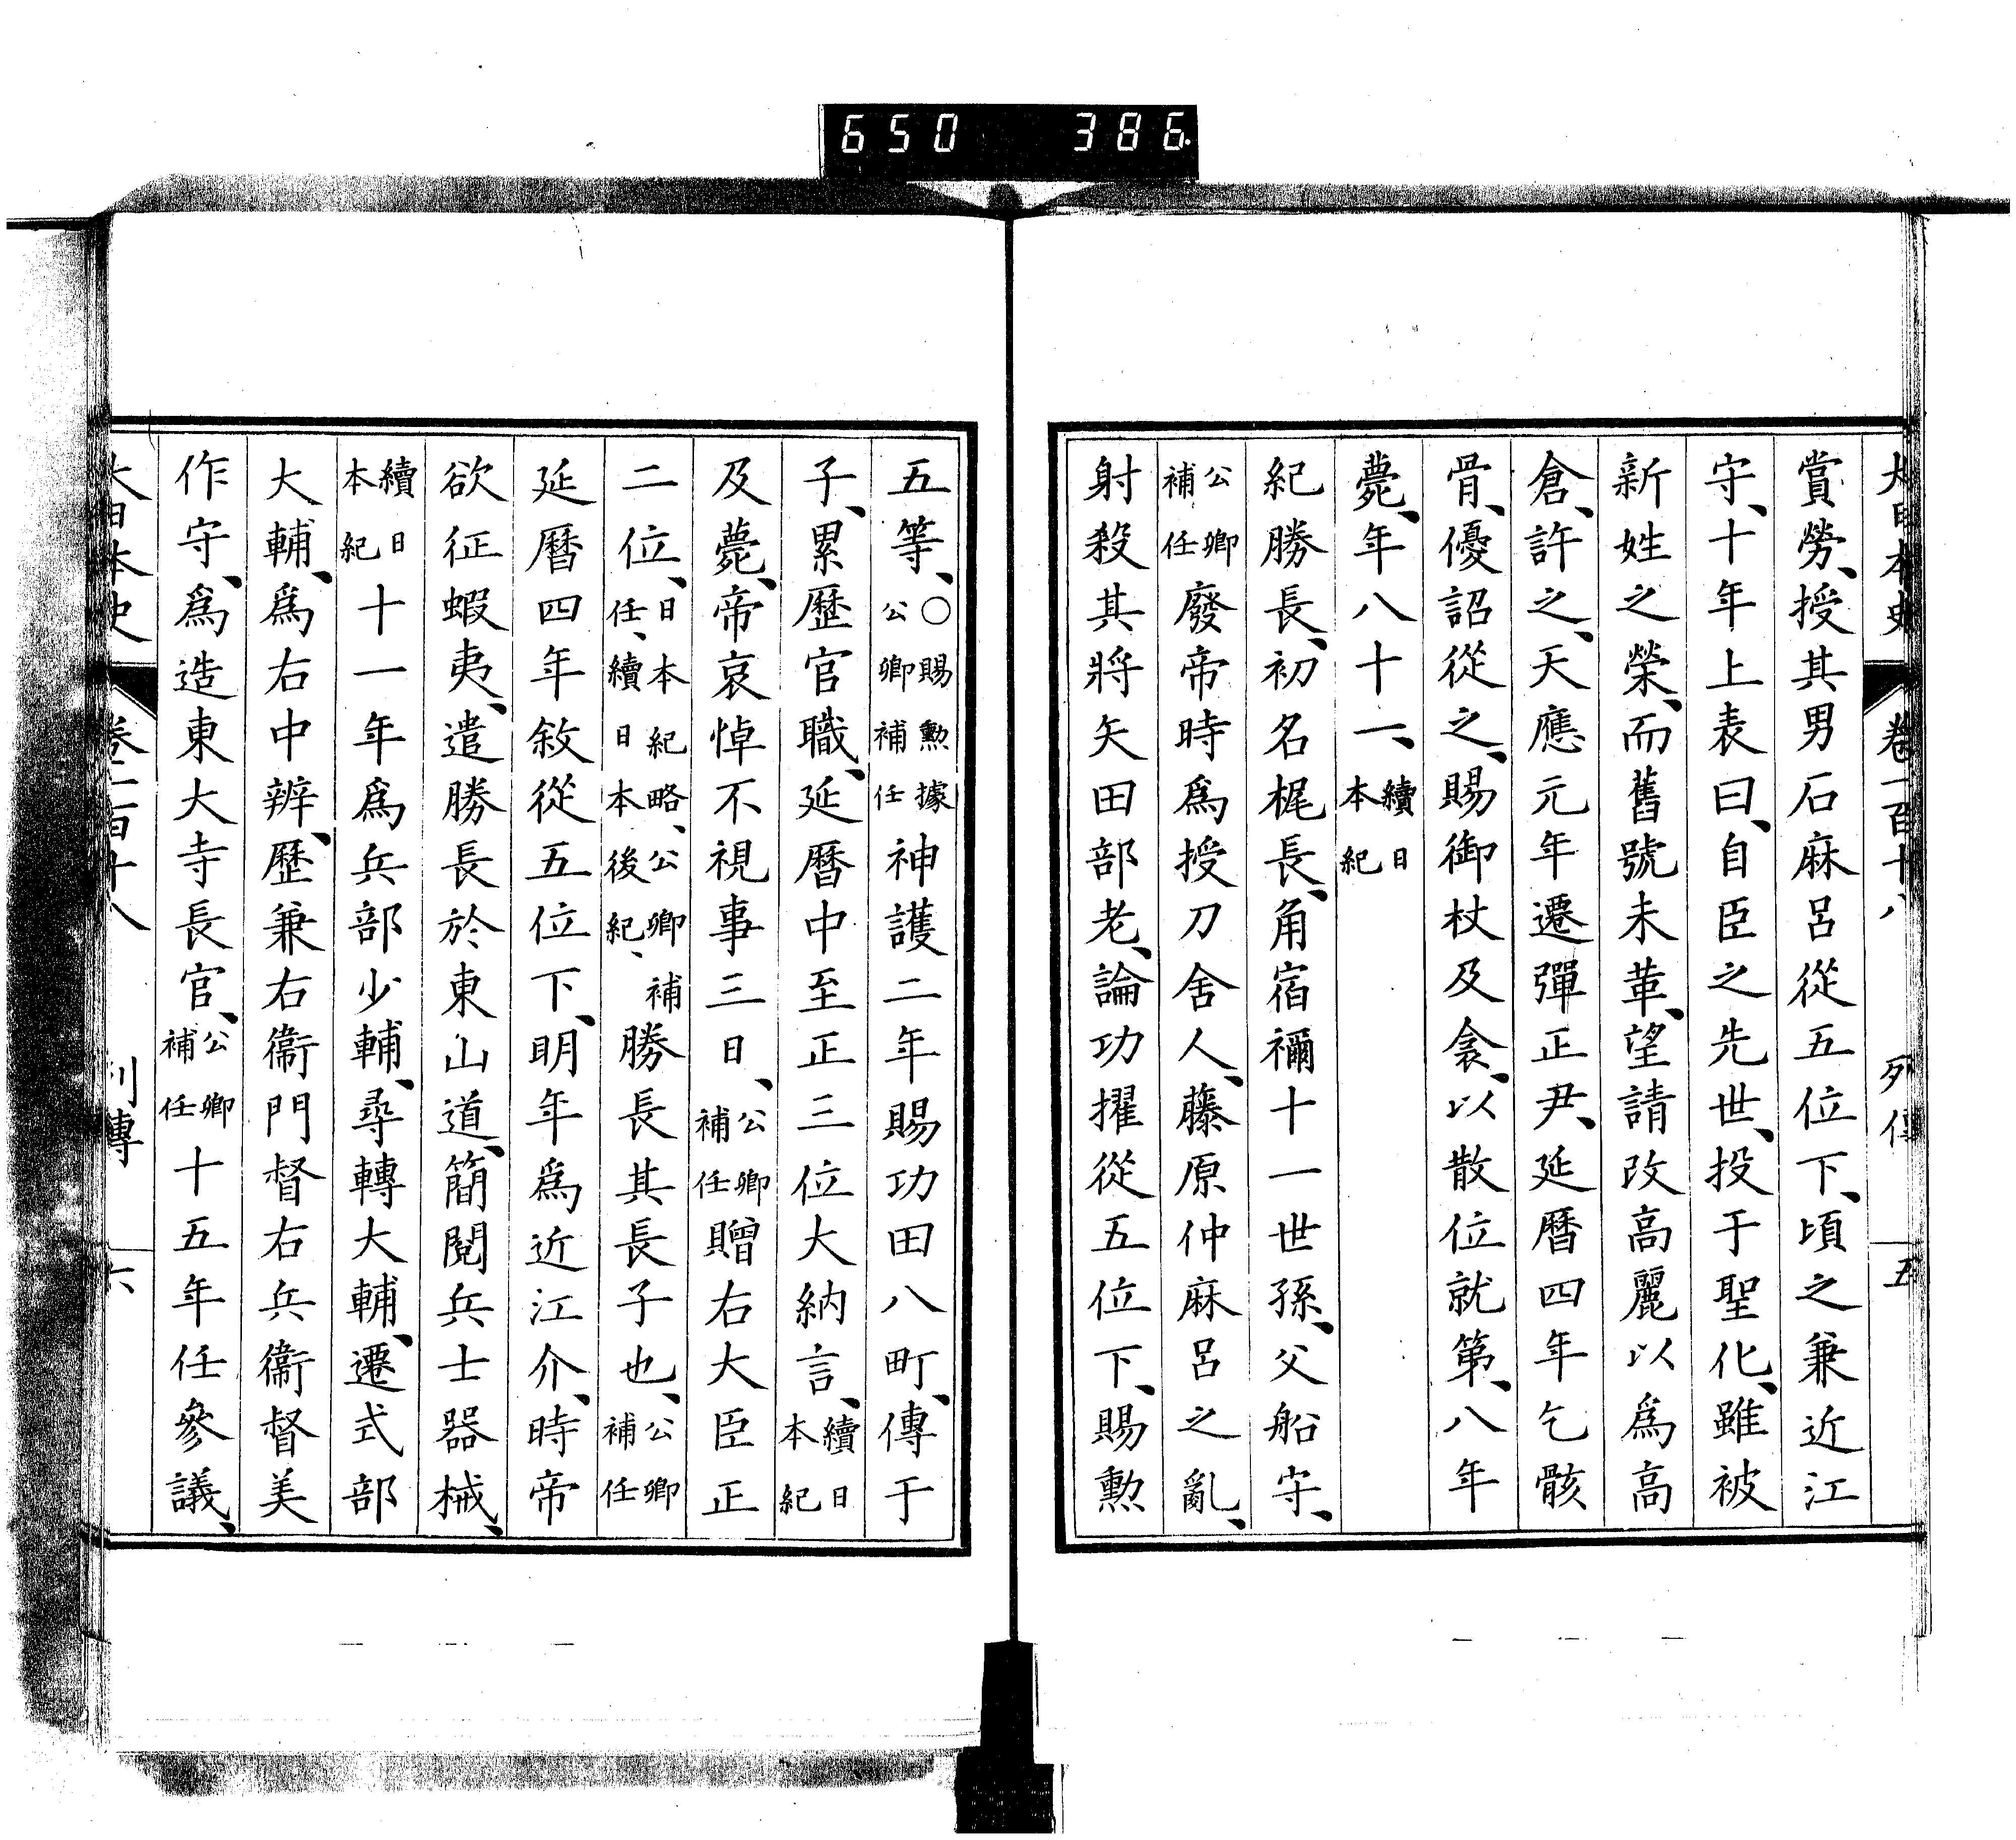 650 386
大日本史 卷一百十八 列傳 五
賞勞、授其男石麻呂從五位下、頃之兼近江
守、十年上表曰、自臣之先世、投于聖化、雖被
新姓之榮、而舊號未革、望請改高麗以爲高
倉、許之、天應元年遷彈正尹、延曆四年乞骸
骨、優詔從之、賜御杖及衾、以散位就第、八年
薨、年八十一、續日本紀
紀勝長、初名梶長、角宿禰十一世孫、父船守、
公卿補任廢帝時爲授刀舍人、藤原仲麻呂之亂、
射殺其將矢田部老、論功擢從五位下、賜勳
五等、○賜勳據公卿補任神護二年賜功田八町、傳于
子、累歷官職、延曆中至正三位大納言、續日本紀
及薨、帝哀悼不視事三日、公卿補任贈右大臣正
二位、日本紀略、公卿補任、續日本後紀、勝長其長子也、公卿補任
延曆四年敘從五位下、明年爲近江介、時帝
欲征蝦夷、遣勝長於東山道、簡閱兵士器械、
續日本紀十一年爲兵部少輔、尋轉大輔、遷式部
大輔、爲右中辨、歷兼右衞門督右兵衞督美
作守、爲造東大寺長官、公卿補任十五年任參議、
大日本史 卷一百十八 列傳 六